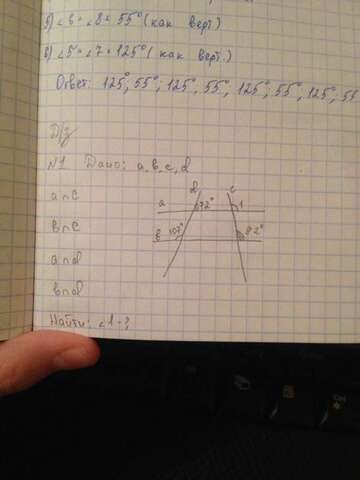 б) ∠6 = ∠8 = 55° (как верт.)
в) ∠5 = ∠7 = 125° (как верт.)
Ответ: 125°, 55°, 125°, 55°, 125°, 55°, 125°, 55
Д/з
№1 Дано: a, b, c, d
a∩c
b∩c
a∩d
b∩d
d c
a 72° 1
b 107° 92°
Найти: ∠1-?